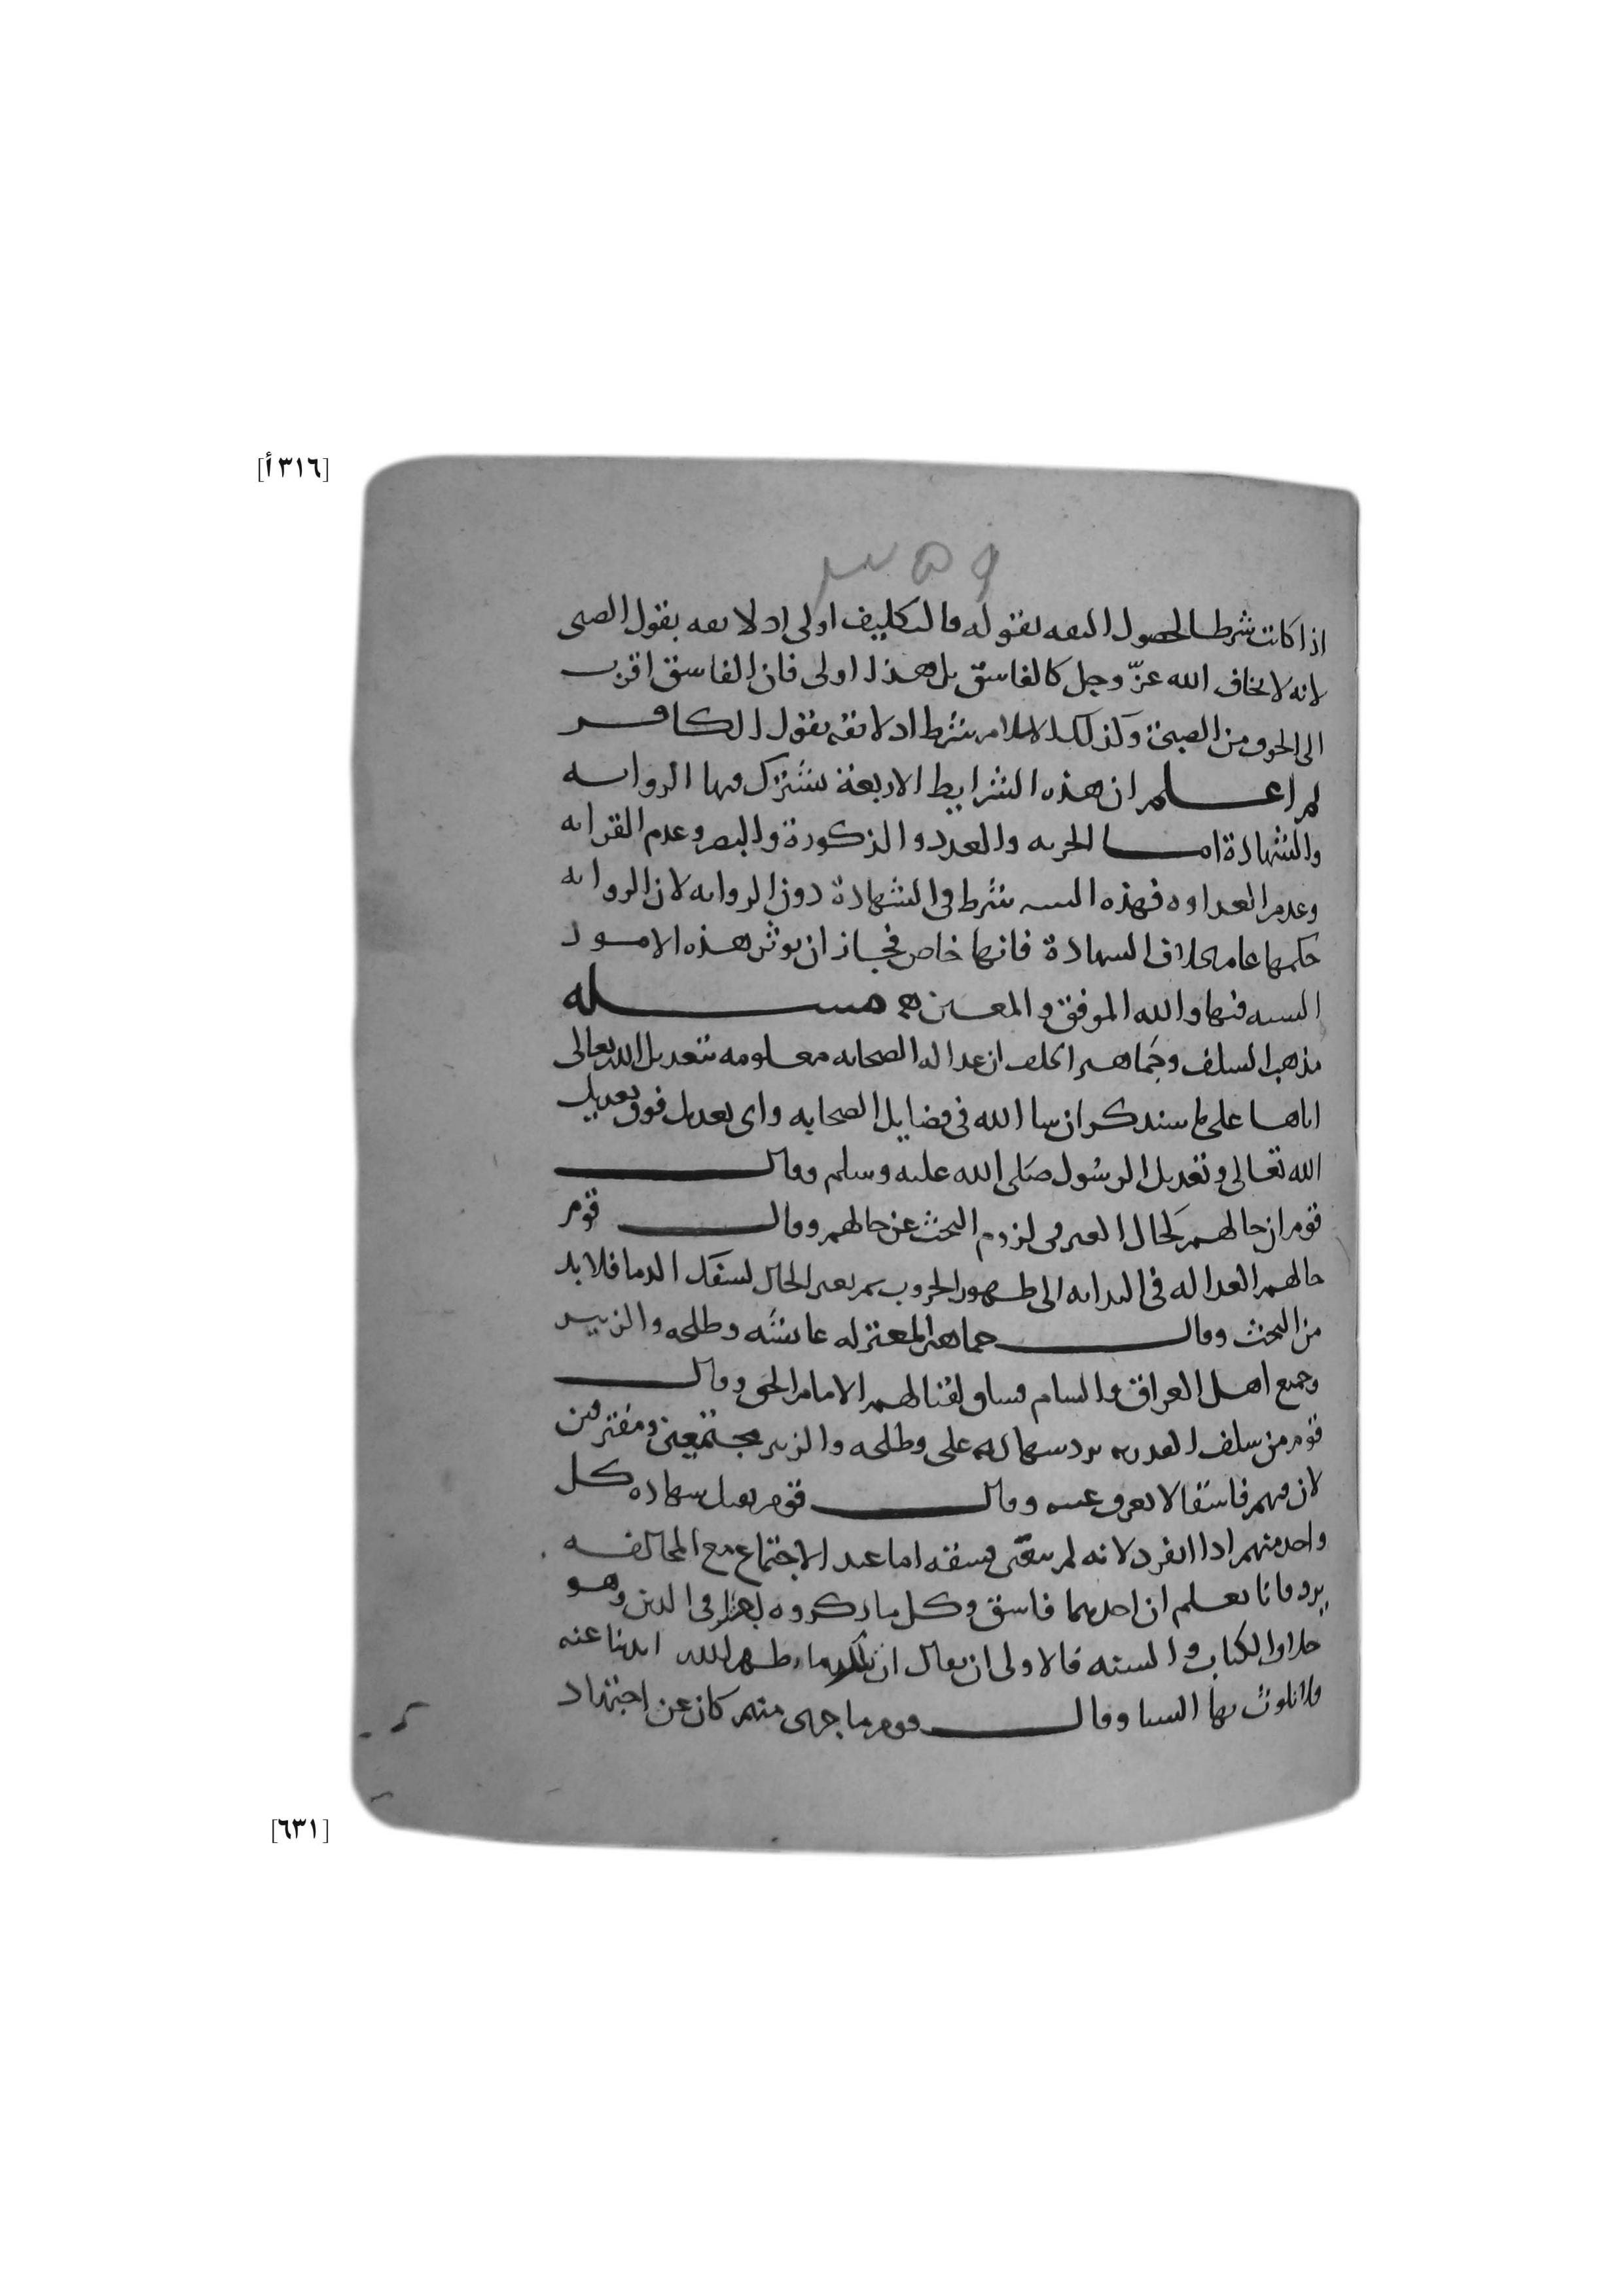 [٣١٦أ]
٣٥٩
اذا كانت شرطا لحصول الثقه بقوله فالتكليف اولى اذ لا ثقه بقول الصبي
لانه لا يخاف الله عزّ وجل كالفاسق بل هذا اولى فان الفاسق اقرب
الى الخوف من الصبي وكذلك الاسلام شرط اذ لا ثقه بقول الكافر
ثم اعلم ان هذه الشرايط الاربعة تشترك فيها الروايه
والشهادة اما الحريه والعدد والذكورة والبصر وعدم القرابه
وعدم العداوه فهذه السته شرط في الشهادة دون الروايه لان الروايه
حكمها عام بخلاف الشهادة فانها خاص فجاز ان يوثر هذه الامور
السته فيها والله الموفق والمعين مسله
مذهب السلف وجماهير الخلف ان عداله الصحابه معلومه بتعديل الله تعالى
اياها على ما سنذكر ان شا الله في فضايل الصحابه واي تعديل فوق تعديل
الله تعالى وتعديل الرسول صلى الله عليه وسلم وقال
قوم ان حالهم كحال الغير في لزوم البحث عن حالهم وقال قوم
حالهم العداله في البدايه الى ظهور الحروب ثم تغير الحال لسفك الدما فلا بد
من البحث وقال جماهير المعتزله عايشه وطلحه والزبير
وجميع اهل العراق والشام فساق لقتالهم الامام الحق وقال
قوم من سلف القدريه يرد شهاده علي وطلحه والزبير مجتمعين ومفترقين
لان فيهم فاسقا لا يعرف عينه وقال قوم يقبل شهاده كل
واحد منهم اذا انفرد لانه لم يتعين فسقه اما عند الاجتماع مع المخالفه
يرد فانا نعلم ان احدهما فاسق وكل ما ذكروه في الدين وهو
خلاف الكتاب والسنه فالاولى ان يقال ان تلك دما طهر الله ايدينا عنه
فلا نلوث بها السنتنا وقال قوم ما جرى منهم كان عن اجتهاد
[٦٣١]